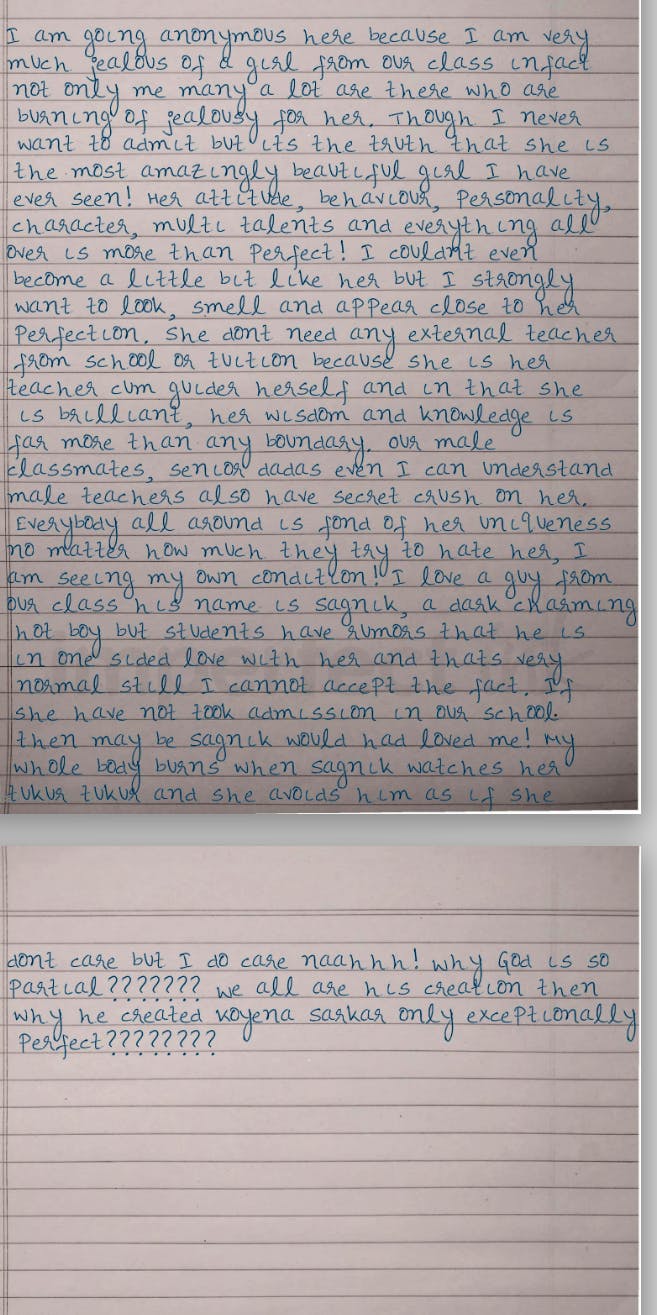 I am going anonymous here because I am very
much jealous of a girl from our class infact
not only me many a lot are there who are
burning of jealousy for her. Though I never
want to admit but its the truth that she is
the most amazingly beautiful girl I have
ever seen! Her attitude, behaviour, Personality,
character, multi talents and everything all
over is more than Perfect! I couldn't even
become a little bit like her but I strongly
want to look, smell and appear close to her
Perfection. She dont need any external teacher
from school or tuition because she is her
teacher cum guider herself and in that she
is brilliant, her wisdom and knowledge is
far more than any boundary. our male
classmates, senior dadas even I can understand
male teachers also have secret crush on her.
Everybody all around is fond of her uniqueness
no matter how much they try to hate her, I
am seeing my own condition! I love a guy from
our class his name is sagnik, a dark charming
hot boy but students have rumors that he is
in one sided love with her and thats very
normal still I cannot accept the fact. If
she have not took admission in our school
then may be sagnik would had loved me! My
whole body burns when sagnik watches her
tukur tukur and she avoids him as if she
dont care but I do care naahhh! why God is so
Partial??????? we all are his creation then
why he created koyena sarkar only exceptionally
Perfect????????